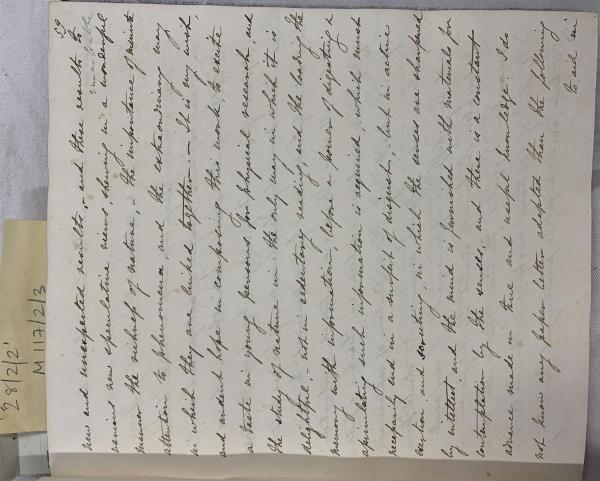 59
new and unexpected results, - and these results to
various new speculative views, shewing in a wonderful
manner the richness of nature, - the importance of minute
attention to phenomena, and the extraordinary way
in which they are linked together. - It is my wish,
and ardent hope in composing this work, to excite
a taste in young persons for physical research and
the study of nature in the only way in which it is
delightful, - not in sedentary reading, and the loading the
memory with information before a power of digesting &
assimilating such information is acquired, which must
necessarily end in a surfeit of disgust, but in active
exertion and in which the senses are sharpened
by interest and the mind is furnished with materials for
contemplation by the senses, and there is a constant
advance made in true and useful knowledge. I do
not know any paper better adapted than the following
to aid in
28/2/2'
M117/2/3